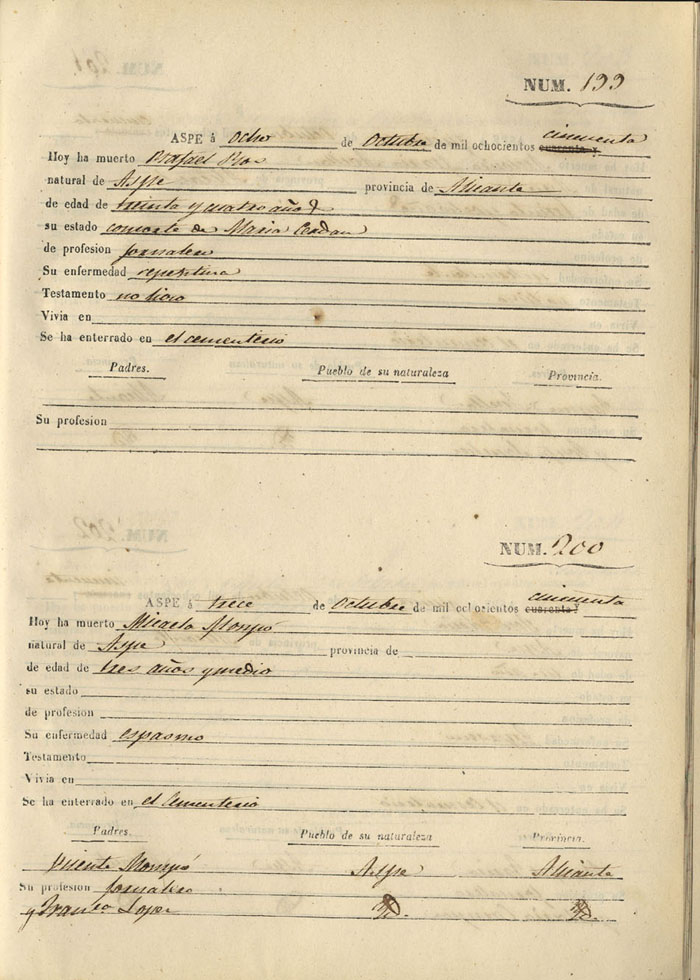 NUM. 199
cincuenta
ASPE á Ocho de Octubre de mil ochocientos cuarenta y
Hoy ha muerto Rafael
natural de Aspe provincia de Alicante
de edad de treinta y cuatro años
su estado consorte de Maria Cerdan
de profesion jornalero
Su enfermedad repentina
Testamento no hizo
Vivia en
Se ha enterrado en el cementerio
Padres. Pueblo de su naturaleza Provincia.
Su profesion
NUM. 200
cincuenta
ASPE á trece de Octubre de mil ochosientos cuarenta y
Hoy ha muerto Micaela Mompó
natural de Aspe provincia de
de edad de tres años y medio
su estado
de profesion
Su enfermedad espasmo
Testamento
Vivia en
Se ha enterrado en el Cementerio
Padres. Pueblo de su naturaleza Provincia.
Vicente Mompó Aspe Alicante
Su profesion jornalero
y Franca Lopez Yd. Yd.